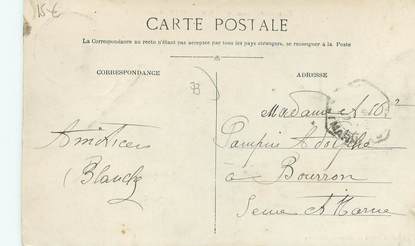 15€
CARTE POSTALE
La Correspondance au recto n'étant pas acceptée par tous les pays étrangers, se renseigner à la Poste
CORRESPONDANCE
ADRESSE
B
Madame
Amitiées
Pampin Adolphe
Blanche
à Bourron
Seine et Marne